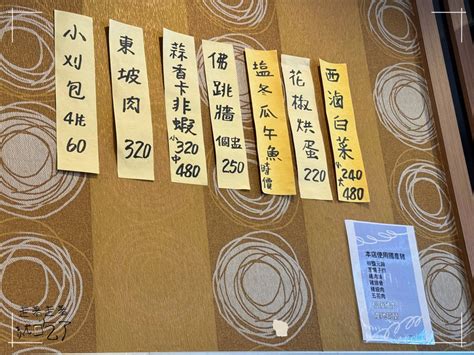 小刈包 4片 60
東坡肉 320
蒜香卡非蝦 小320 中480
佛跳牆 個盅 250
塩冬瓜午魚 時價
花椒烘蛋 220
西滷白菜 小240 大480
本店使用國產豬